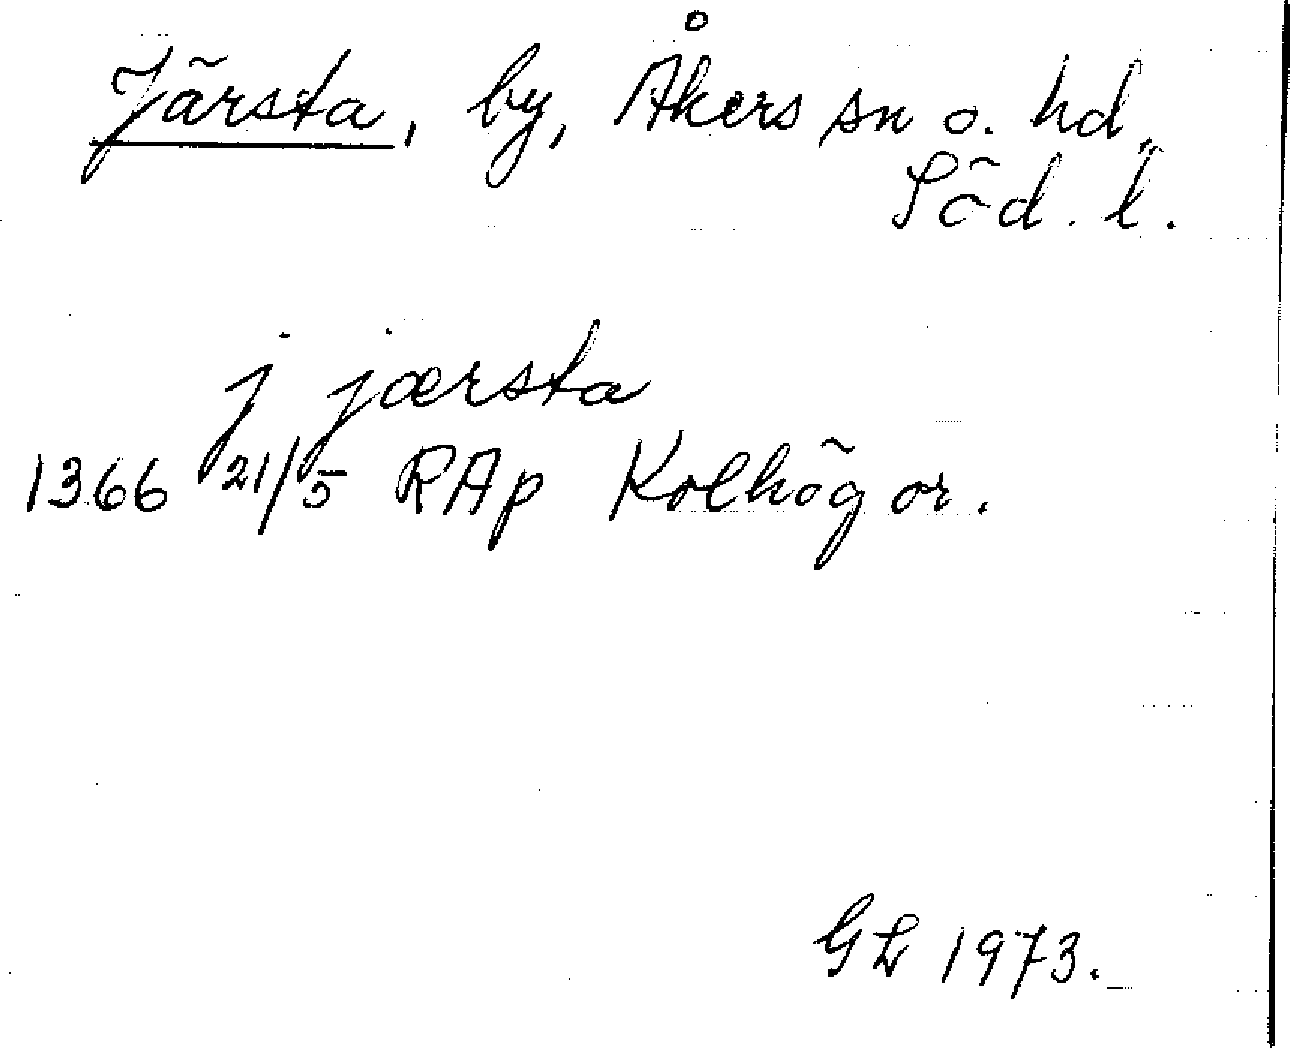 Järsta, by, Åkers sn o. hd,
Söd. l.
j jærsta
1366 21/5 RAp Kolhög or.
GL 1973.